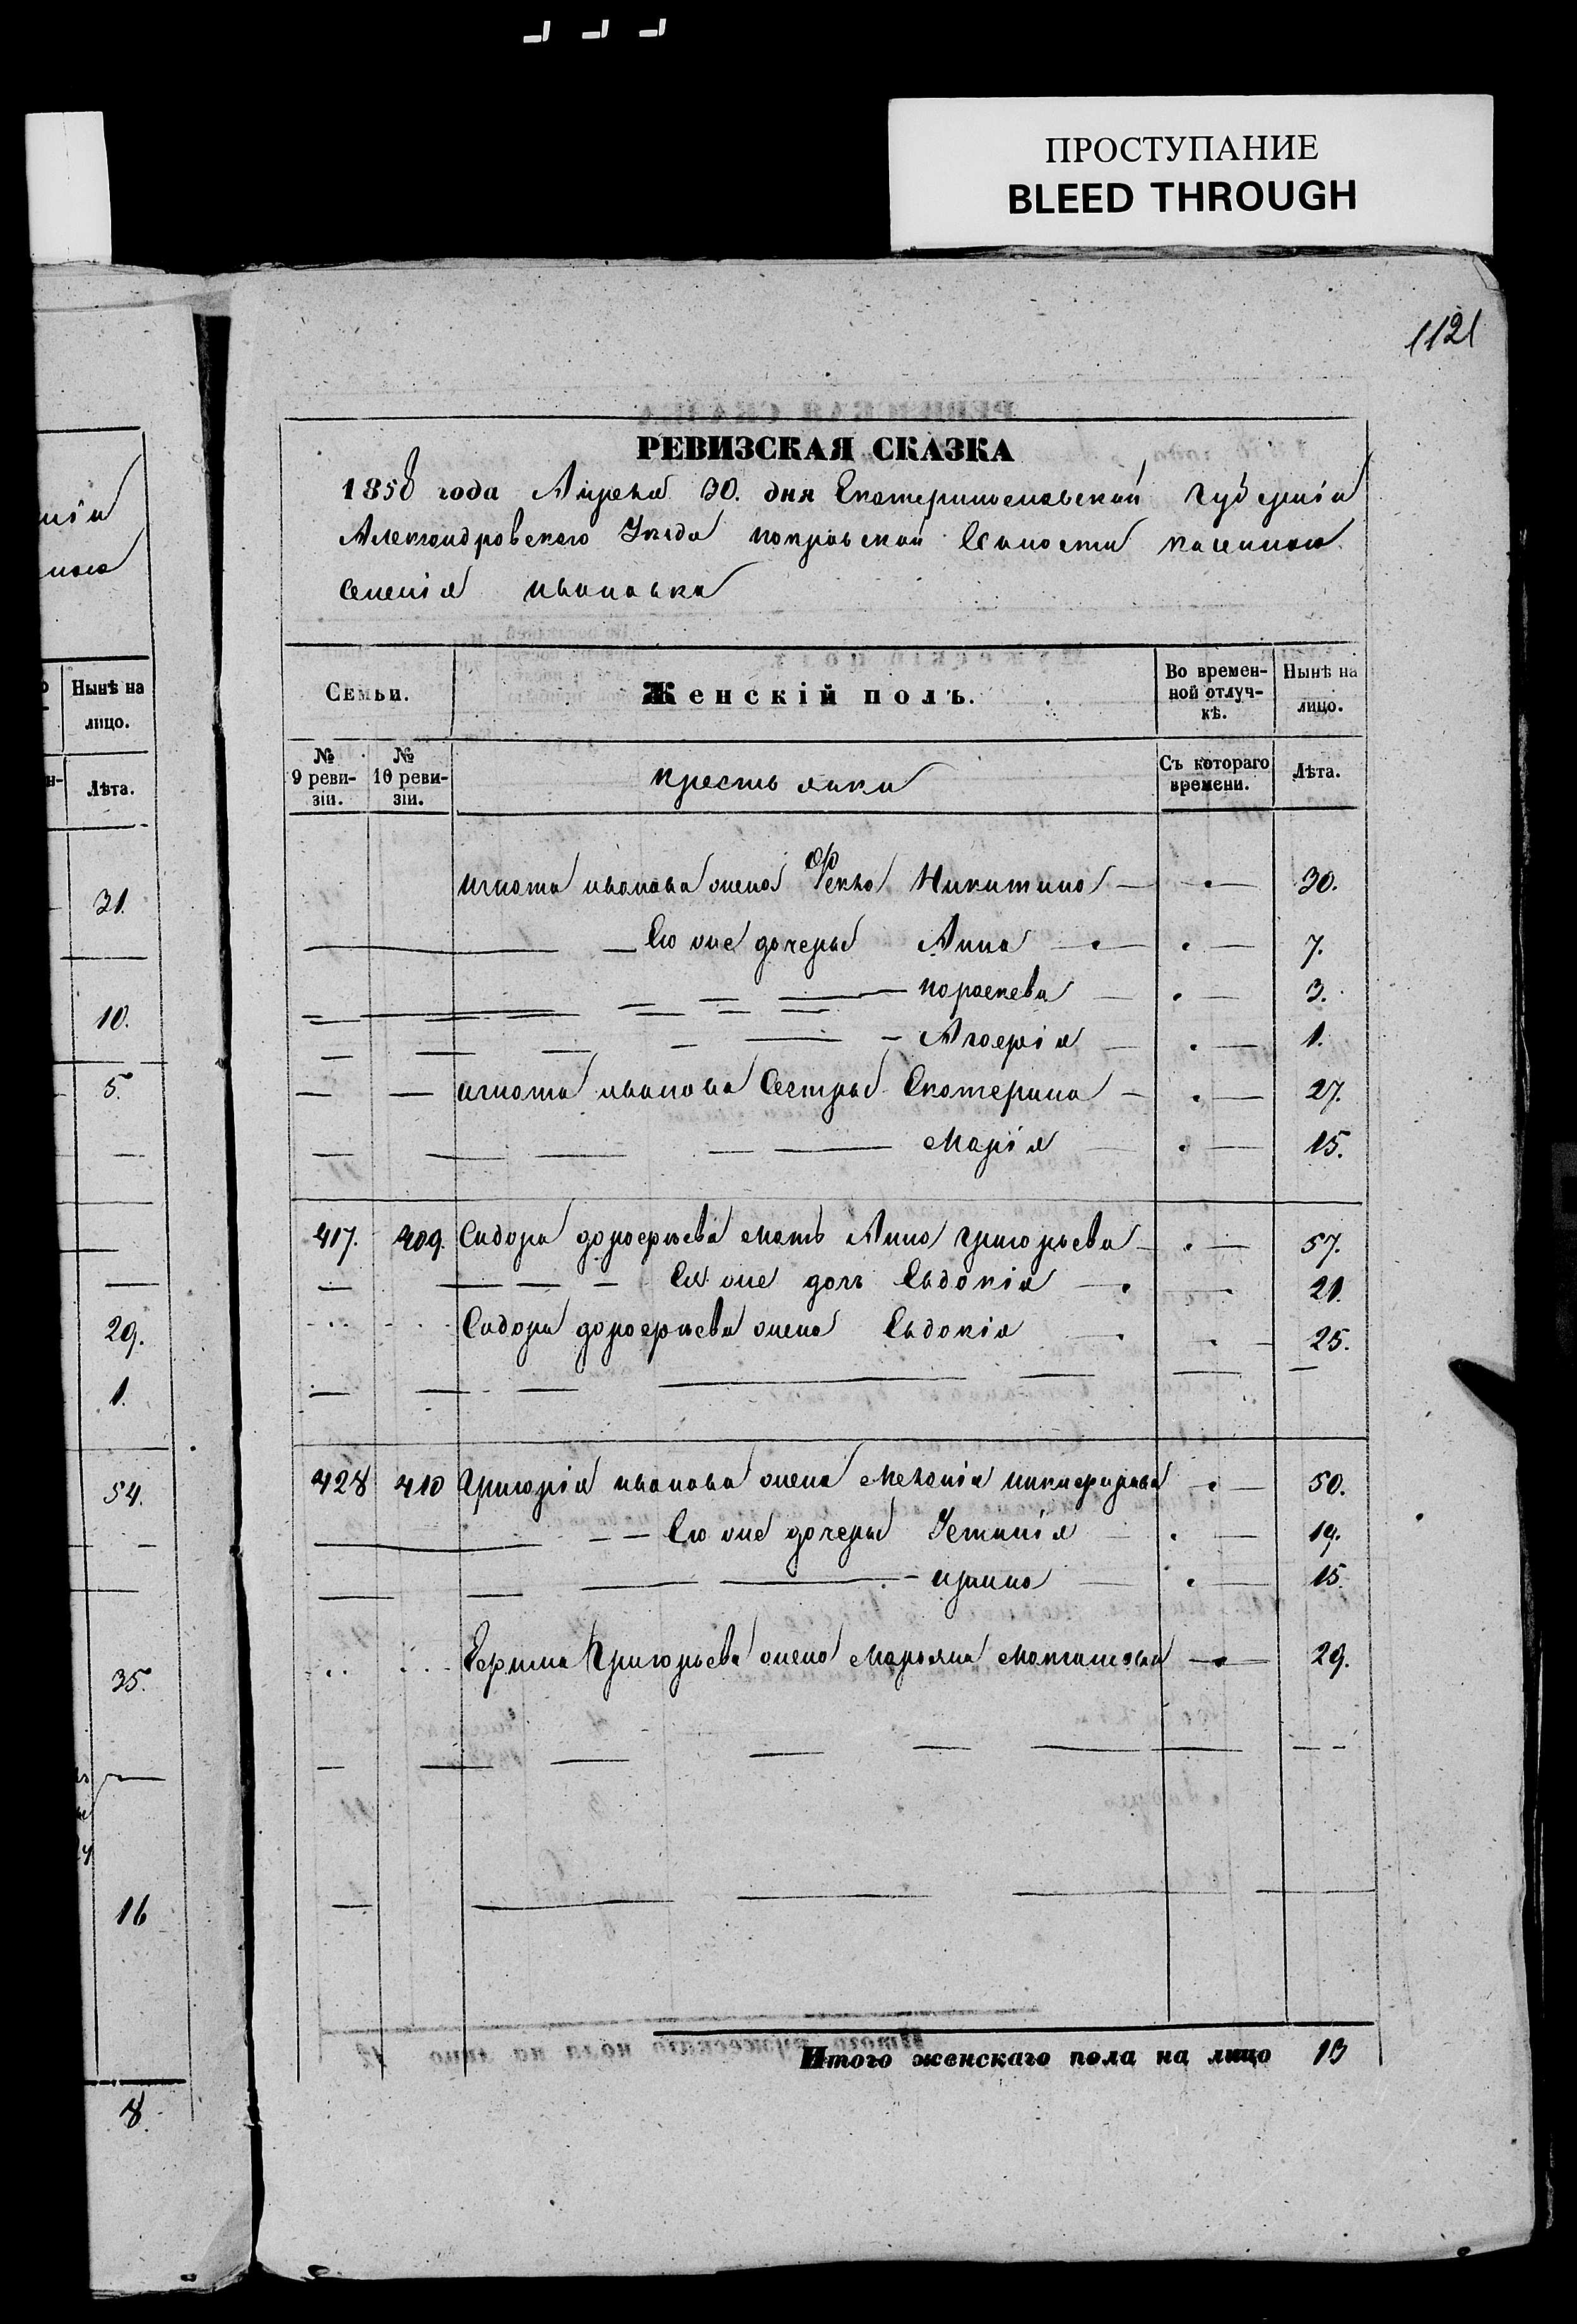 ПРОСТУПАНИЕ
BLEED THROUGH
1121
РЕВИЗСКАЯ СКАЗКА
1858 года Апреля 30. дня Екатеринославской губерніи
Александровского Уезда покровской Волости казенного
селенія ивановка
Семьи.
Женскій полъ.
Во времен-
ной отлуч-
кѣ.
Нынѣ на
лицо.
№
9 реви-
зіи.
№
10 реви-
зіи.
крестьянки
Съ котораго
времени.
Лѣта.
игната иванова жена Фекла Никитина 30.
Его же дочеры Анна 7.
параскева 3.
Агафія 1.
игната иванова Сестры Екатерина 27.
Марія 15.
417. 409. Сидора дорофеева мать Анна григорьева 57.
Ея же дочь Евдокія 21.
Сидора дорофеева жена Евдокія 25.
428 410 григорія иванова жена Меланія никифорова 50.
Его же дочеры Устинія 19.
ирина 15.
Ефима Григорьева жена Марьяна 29.
Итого женскаго пола на лицо 13
Нынѣ на
лицо.
Лѣта.
31.
10.
5.
29.
1.
54.
35.
16
8.